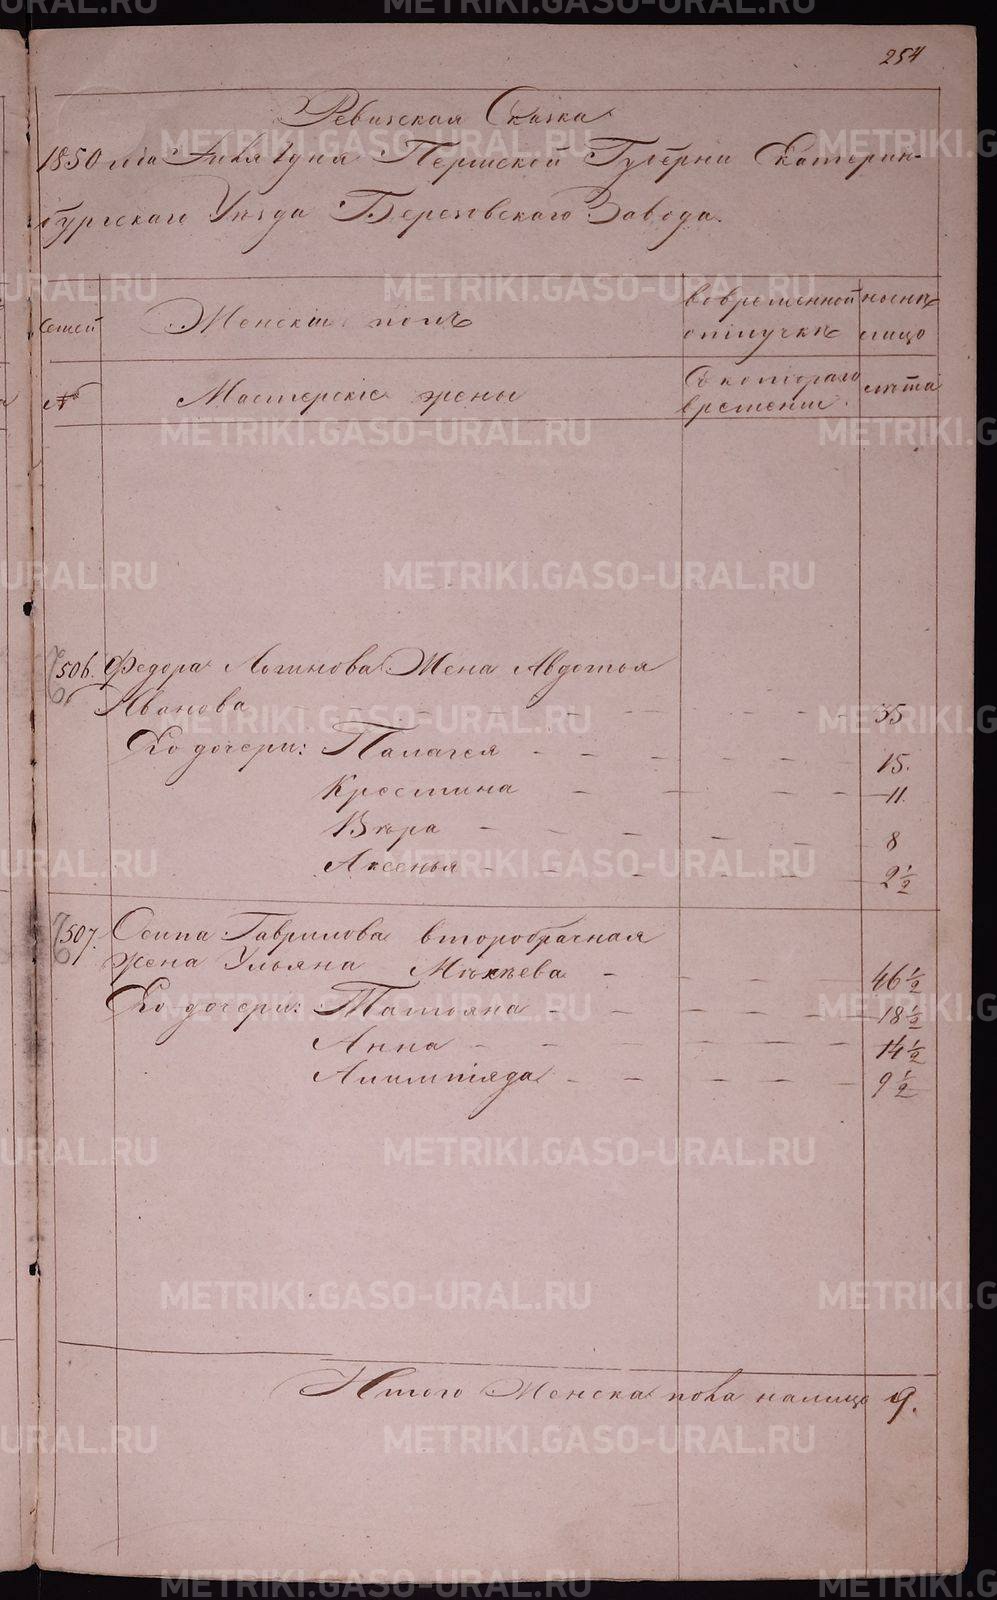 254
Ревизская Сказка
1850 года Июля 1 дня Пермской Губерни Екатерин-
бургскаго Уезда Березовскаго Завода.
семей
Женский полъ
во временной
отлучкѣ
ныенѣ
лицо
№
Мастерские жены
Съ котораго
времени
лѣта
506. Федора Логинова Жена Авдотья
Иванова 35
Ево дочери: Палагея 15.
Крестина 11.
Вѣра 8
Аксенья 2½
507. Осипа Гаврилова второбрачная
жена Ульяна Мѣкѣева 46½
Ево дочери: Татьяна 18½
Анна 14½
Алимпіяда 9½
Итого Женска пола налицо 9.
METRIKI.GASO-URAL.RU